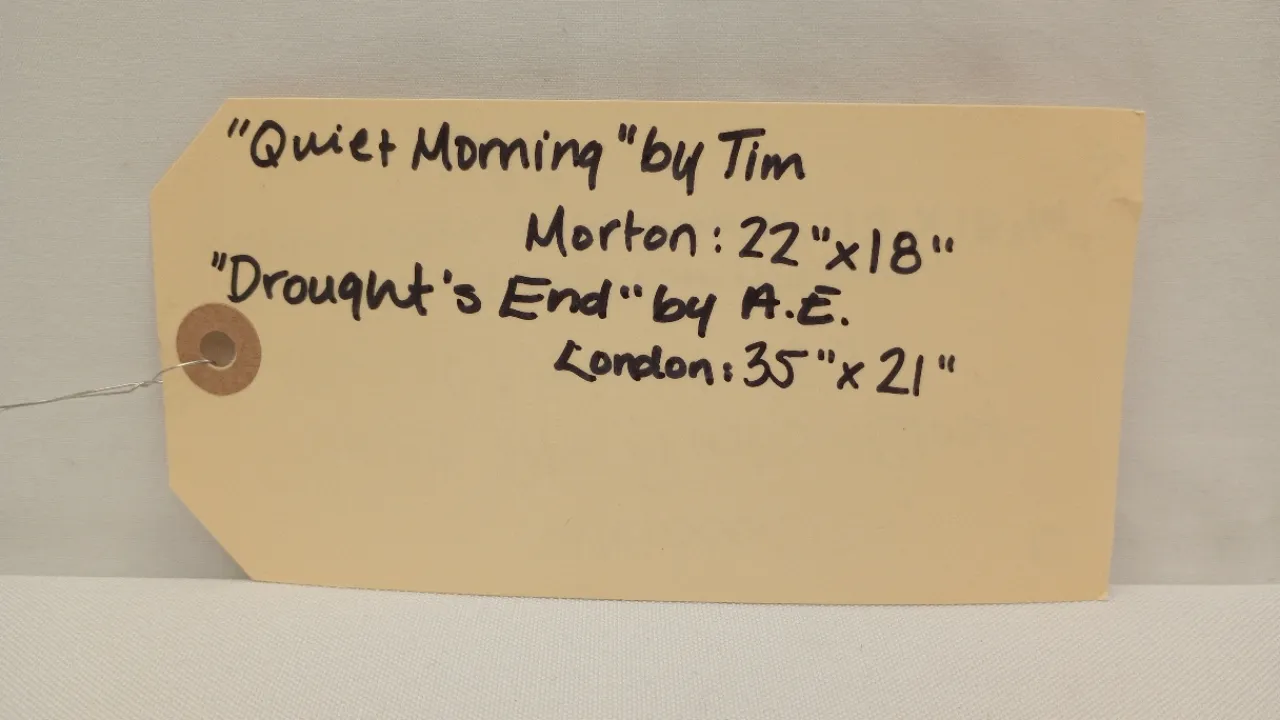 "Quiet Morning" by Tim
Morton: 22"x18"
"Drought's End" by A.E.
London: 35"x 21"